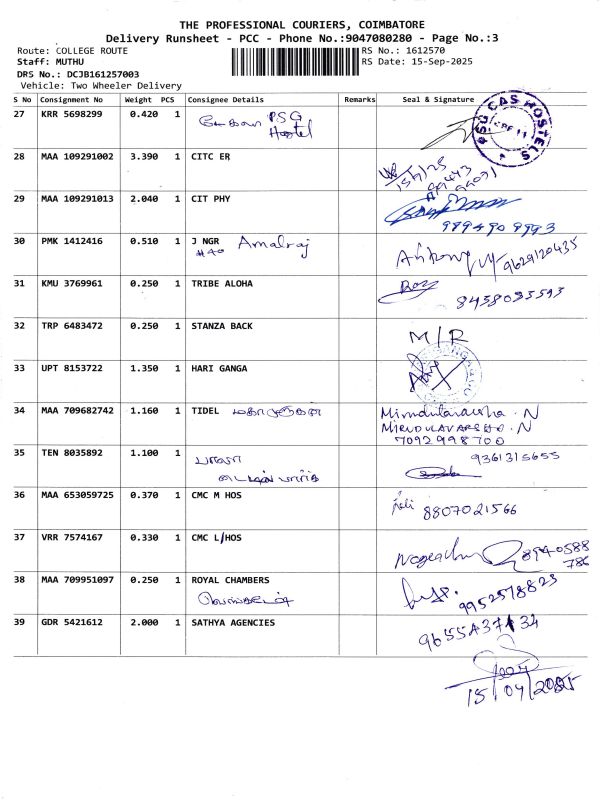 THE PROFESSIONAL COURIERS, COIMBATORE
Delivery Runsheet - PCC - Phone No.:9047080280 - Page No.:3
Route: COLLEGE ROUTE
RS No.: 1612570
Staff: MUTHU
RS Date: 15-Sep-2025
DRS No.: DCJB161257003
Vehicle: Two Wheeler Delivery
S No Consignment No Weight PCS Consignee Details Remarks Seal & Signature
27 KRR 5698299 0.420 1 PSG
Hostel
PSG CAS HOSTELS
28 MAA 109291002 3.390 1 CITC ER
29 MAA 109291013 2.040 1 CIT PHY
9894909993
30 PMK 1412416 0.510 1 J NGR Amalraj
#40
9629120435
31 KMU 3769961 0.250 1 TRIBE ALOHA
Roy
8438035593
32 TRP 6483472 0.250 1 STANZA BACK
M/R
33 UPT 8153722 1.350 1 HARI GANGA
34 MAA 709682742 1.160 1 TIDEL
MIRUDULAVARSHA.N
7092998700
35 TEN 8035892 1.100 1
9361315655
36 MAA 653059725 0.370 1 CMC M HOS
8807021566
37 VRR 7574167 0.330 1 CMC L/HOS
8940588
786
38 MAA 709951097 0.250 1 ROYAL CHAMBERS
9952578823
39 GDR 5421612 2.000 1 SATHYA AGENCIES
9655437434
15/04/2025